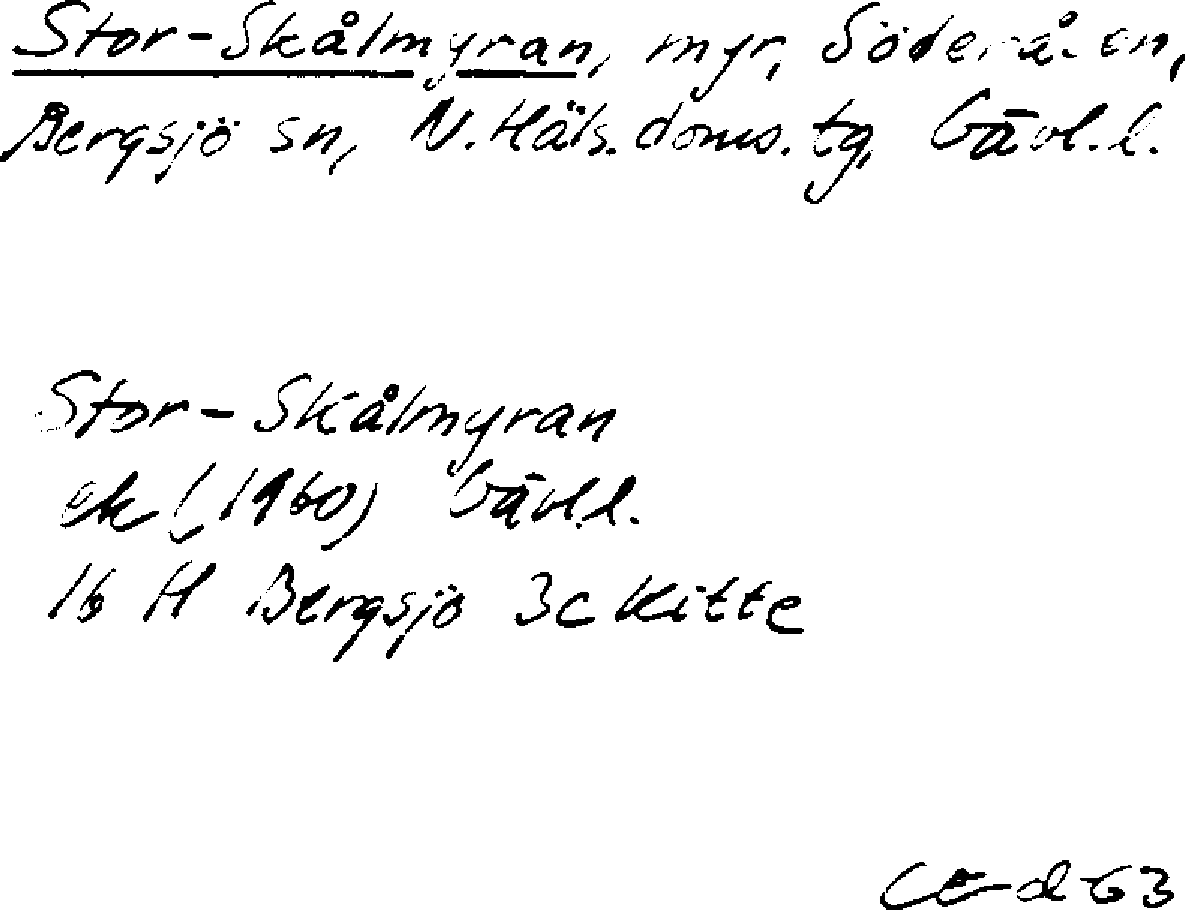 Stor-Skålmyran, myr, Söderå. sn,
Bergsjö sn, N. Häls. doms. tg, Gävl. l.
Stor-Skålmyran
ek (1960) Gävl.l.
16 H Bergsjö 3c Kitte
63